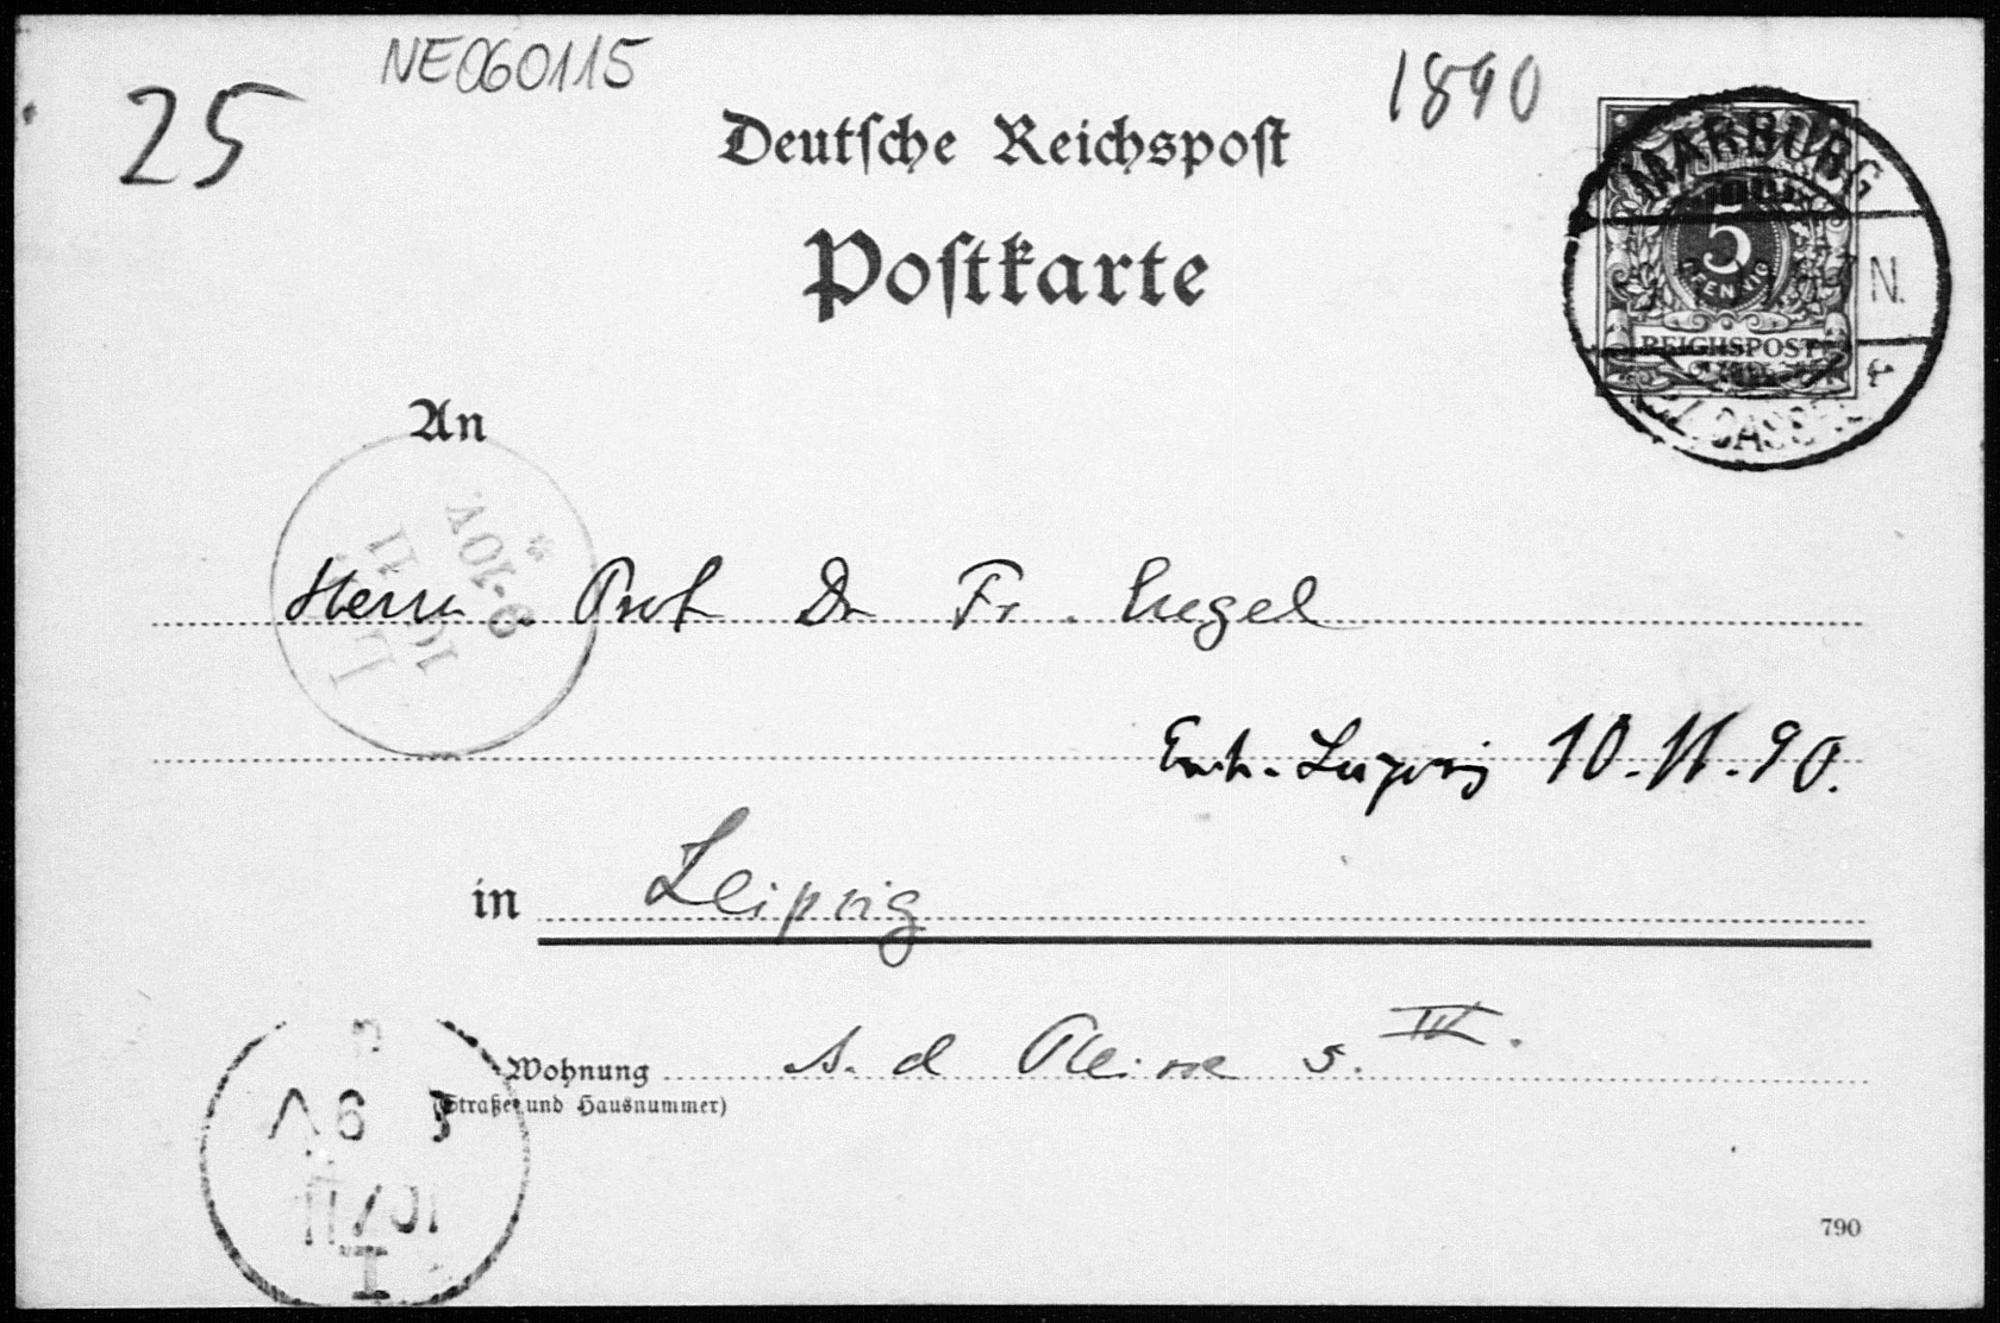 NE060115
25
1890
Deutsche Reichspost
Postkarte
MARBURG
5
PFENNIG
REICHSPOST
N.
An
9-10V
11
Herrn Prof Dr Fr. Engel
Leipzig 10.11.90.
in Leipzig
Wohnung A. d Pleisse 5. IV.
(Straße und Hausnummer)
10/11
I
790